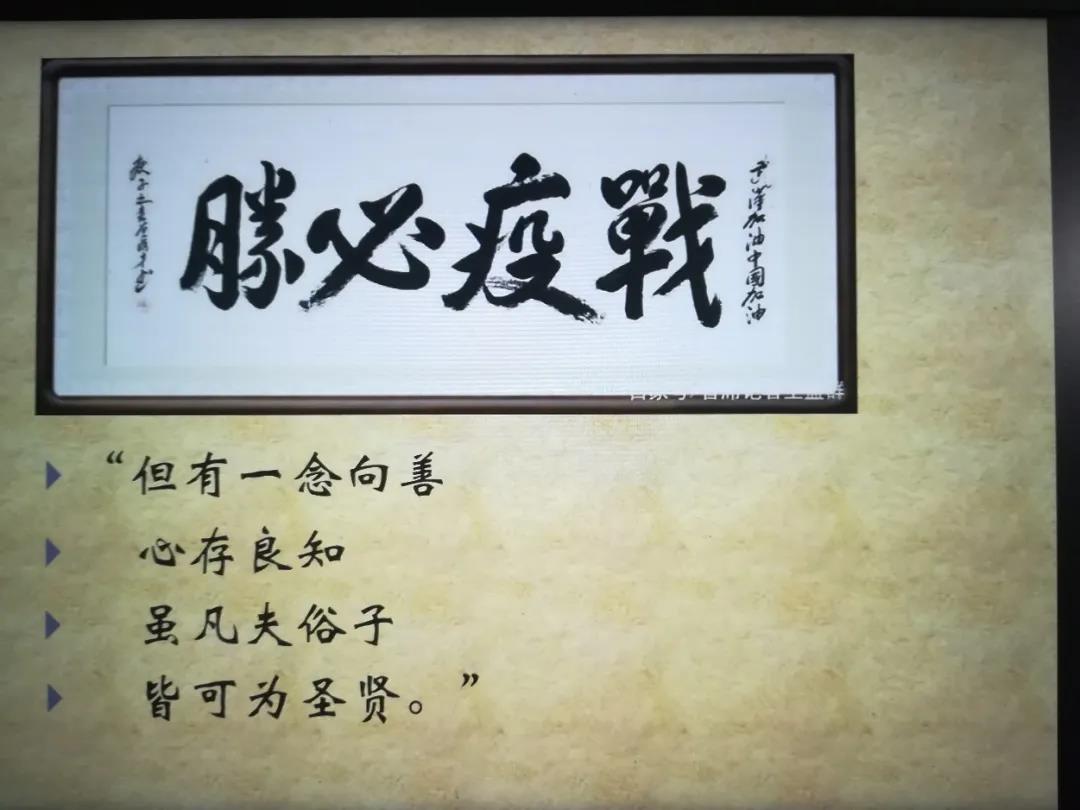 戰疫必勝
武漢加油中國加油
“但有一念向善
心存良知
虽凡夫俗子
皆可为圣贤。”